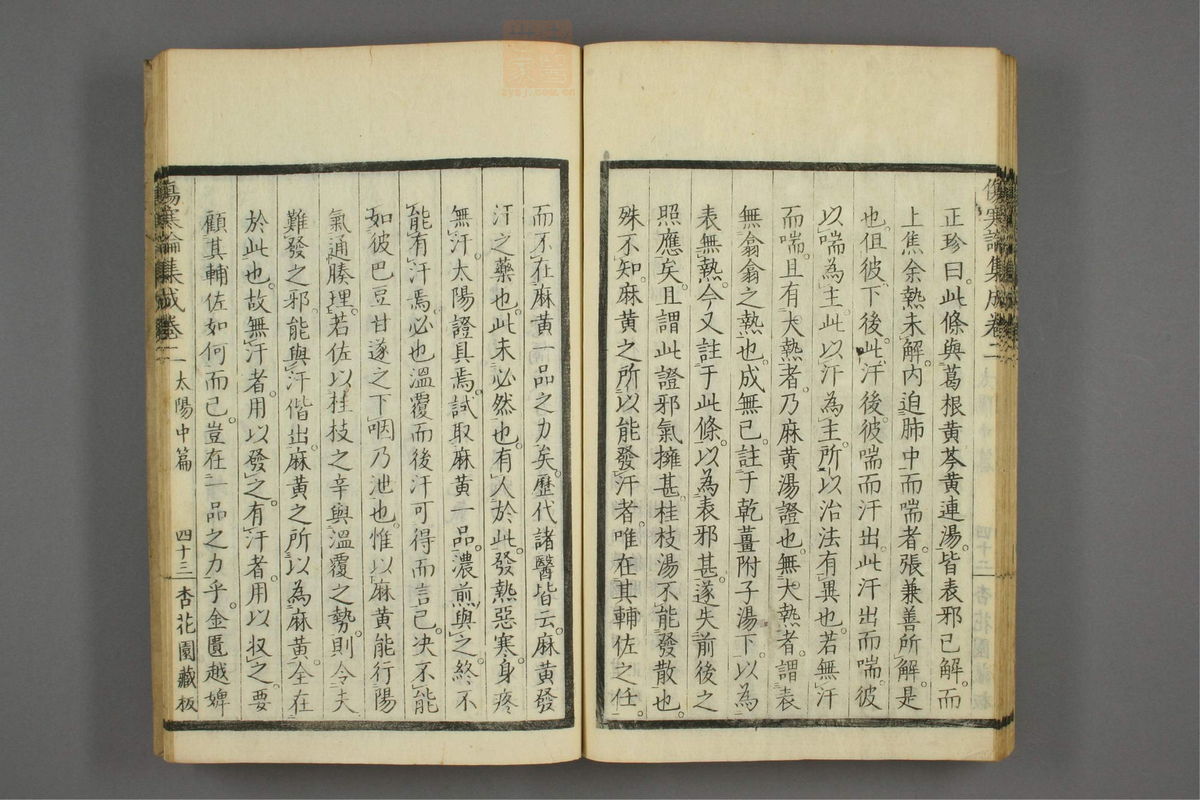 正珍曰。此條與葛根黄芩黄連湯。皆表邪已解。而
上焦余熱未解。内迫肺中而喘者。張兼善所解。是
也。但彼下後。此汗後。彼喘而汗出。此汗出而喘。彼
以喘為主。此以汗為主。所以治法有異也。若無汗
而喘。且有大熱者。乃麻黄湯證也。無大熱者。謂表
無翕翕之熱也。成無已註于乾薑附子湯下。以為
表無熱。今又註于此條。以為表邪甚。遂失前後之
照應矣。且謂此證邪氣擁甚。桂枝湯不能發散也。
殊不知麻黄之所以能發汗者。唯在其輔佐之任。
傷寒論集成卷二
而不在麻黄一品之力矣。歷代諸醫皆云。麻黄發
汗之藥也。此未必然也。有人於此。發熱惡寒。身疼
無汗。太陽證具焉。試取麻黄一品。濃煎與之。終不
能有汗焉。必也溫覆而後汗可得而言已。决不能
如彼巴豆甘遂之下咽乃泄也。惟以麻黄能行陽
氣。通腠理。若佐以桂枝之辛與溫覆之勢。則令夫
難發之邪。能與汗偕出。麻黄之所以為麻黄。全在
於此也。故無汗者。用以發之。有汗者。用以収之。要
顧其輔佐如何而已。豈在一品之力乎。金匱越婢
傷寒論集成卷二 太陽中篇 四十三 杏花園藏板